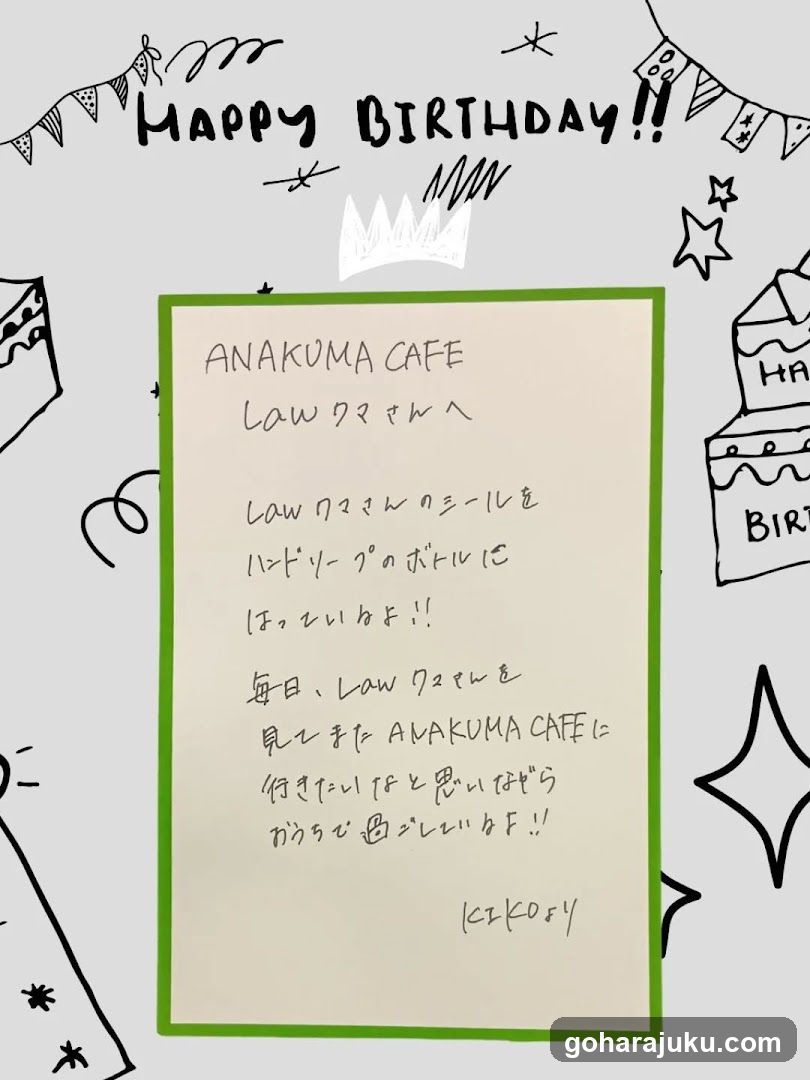 HAPPY BIRTHDAY!!
ANAKUMA CAFE
Lawクマさんへ
Lawクマさんのシールを
ハンドソープのボトルに
はっているよ!!
毎日、Lawクマさんを
見てまたANAKUMA CAFEに
行きたいなと思いながら
おうちで過ごしているよ!!
KIKOより
HA
BIRT
goharajuku.com